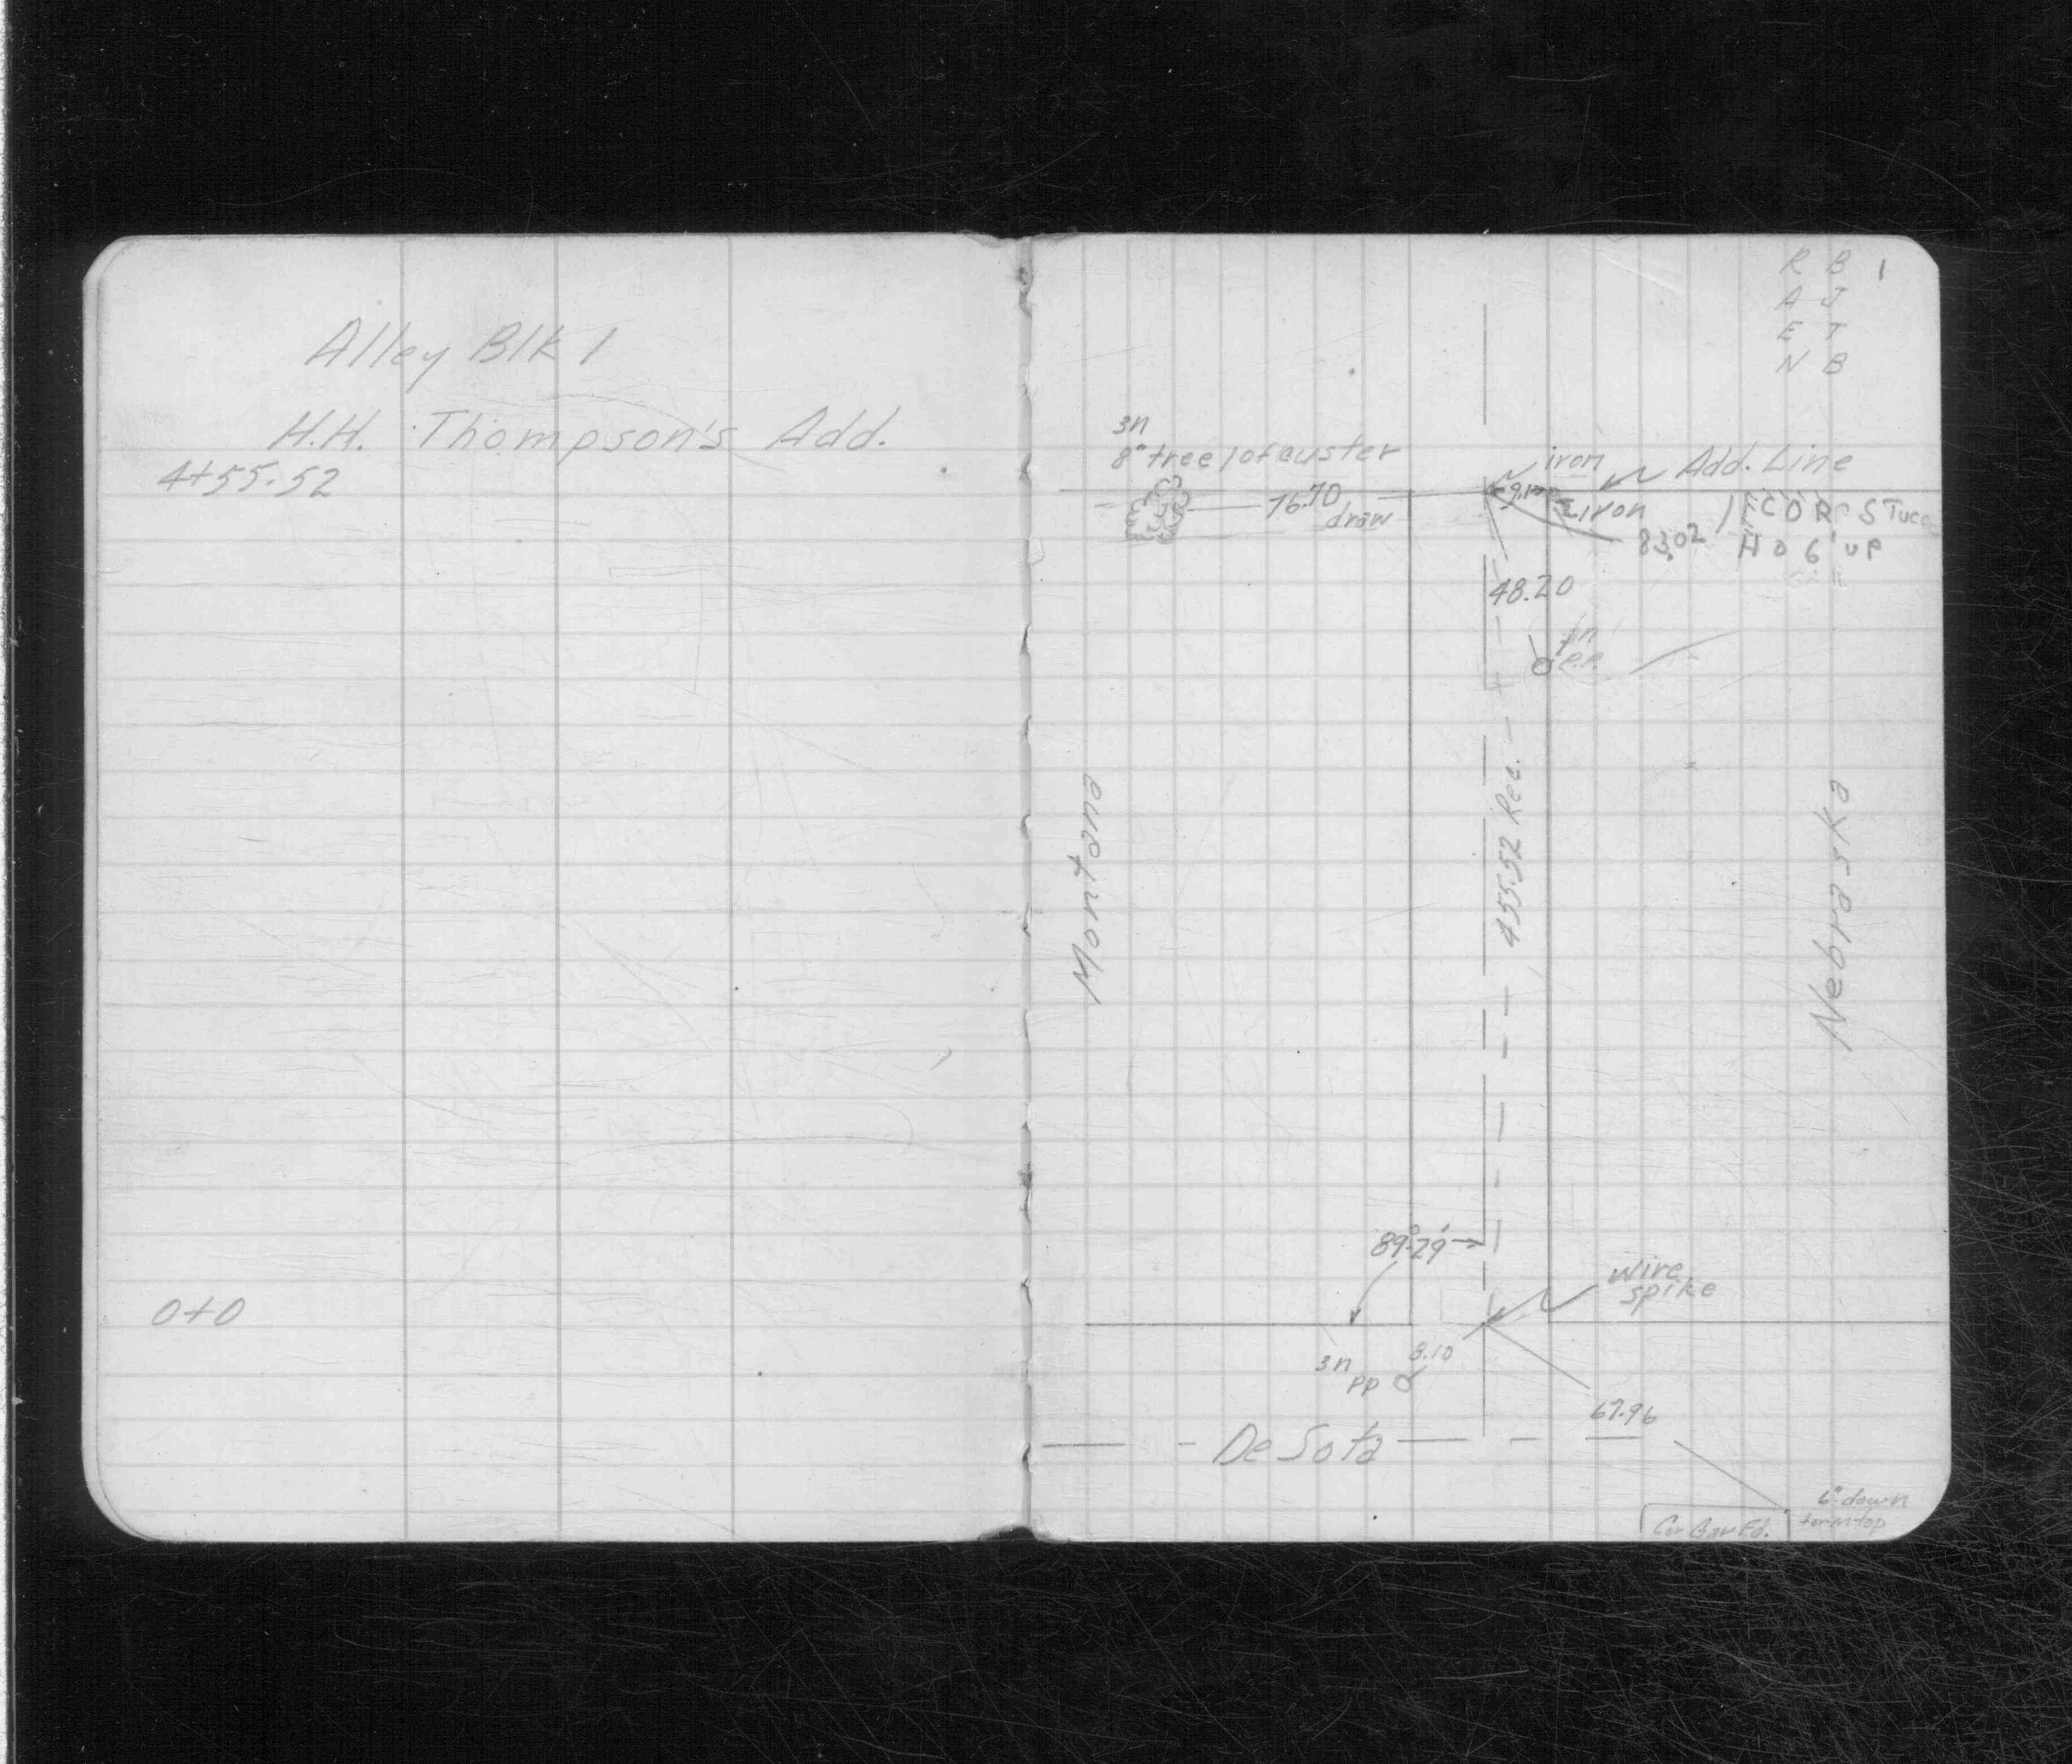 Alley Blk 1
H.H. Thompson's Add.
4+55.52
0+0
R B 1
A J
E T
N B
3n
8" tree 1 of custer
76.70
draw
iron
Add. Line
9.10
iron
83.02
COR STucc
HO 6' UP
48.20
P.P.
455.52 Rec.
Montana
Nebraska
89°29'
wire
spike
8.10
3n
PP
67.96
De Sota
6" down
form top
Cor Gar Fd.